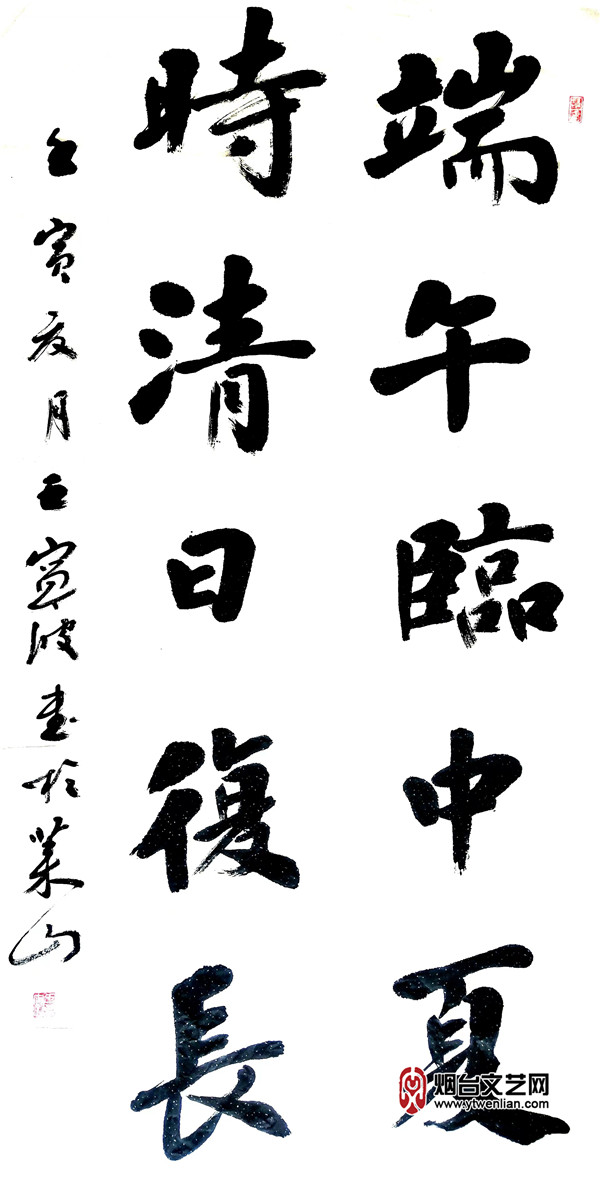 端午臨中夏
時清日復長
壬寅夏月王寧波書於莱山
烟台文艺网
www.ytwenlian.com